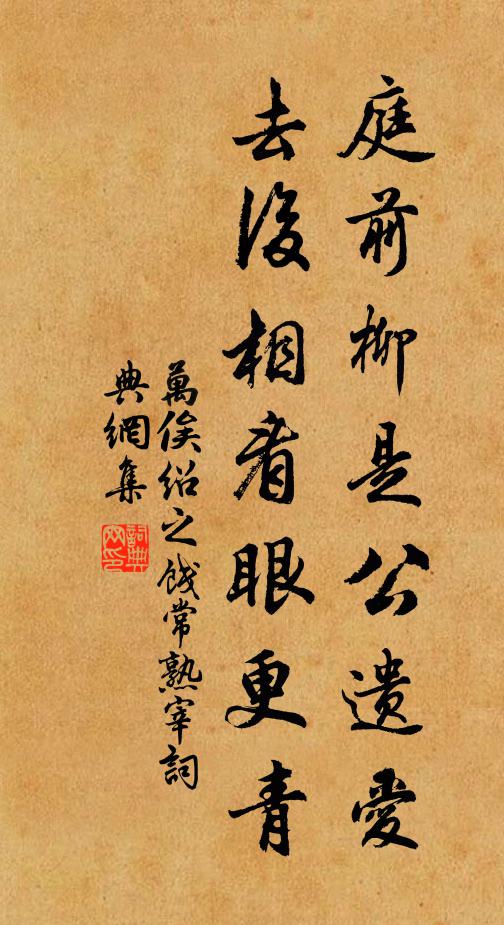 庭前柳是公遺愛
去後相看眼更青
萬俟紹之餞常熟宰詞
典網集
詞典網印